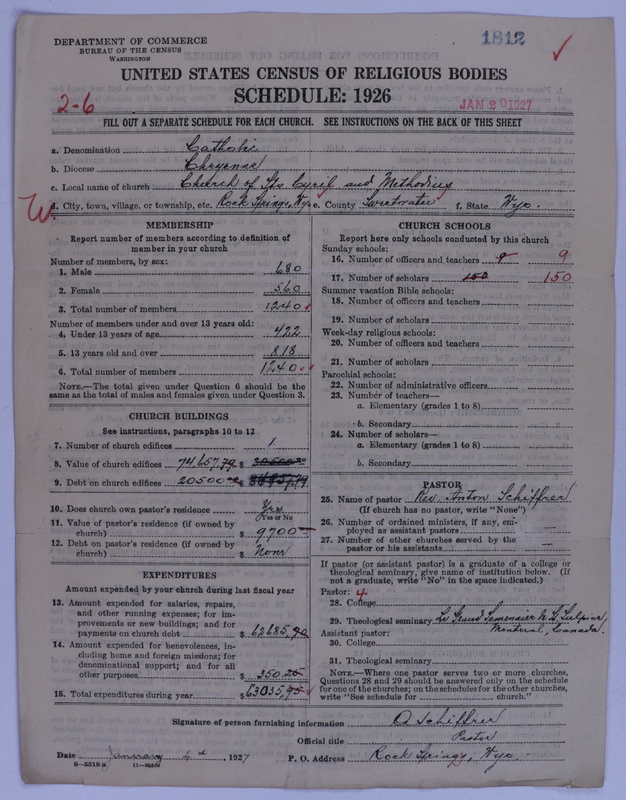 1812
DEPARTMENT OF COMMERCE
BUREAU OF THE CENSUS
WASHINGTON
UNITED STATES CENSUS OF RELIGIOUS BODIES
SCHEDULE: 1926
2-6
JAN 20 1927
FILL OUT A SEPARATE SCHEDULE FOR EACH CHURCH. SEE INSTRUCTIONS ON THE BACK OF THIS SHEET
a. Denomination Catholic
b. Diocese Cheyenne
c. Local name of church Church of Sts Cyril and Methodius
W
d. City, town, village, or township, etc. Rock Springs, Wyo e. County Sweetwater f. State Wyo.
MEMBERSHIP
Report number of members according to definition of
member in your church
Number of members, by sex:
1. Male 680
2. Female 560
3. Total number of members 1240
Number of members under and over 13 years old:
4. Under 13 years of age 422
5. 13 years old and over 818
6. Total number of members 1240
NOTE.—The total given under Question 6 should be the
same as the total of males and females given under Question 3.
CHURCH BUILDINGS
See instructions, paragraphs 10 to 12
7. Number of church edifices 1
8. Value of church edifices 74657,79 $ 20500
9. Debt on church edifices 20500 $
10. Does church own pastor's residence Yes
Yes or No
11. Value of pastor's residence (if owned by
church) $ 9700
12. Debt on pastor's residence (if owned by
church) $ None
EXPENDITURES
Amount expended by your church during last fiscal year
13. Amount expended for salaries, repairs,
and other running expenses; for im-
provements or new buildings; and for
payments on church debt $ 62685,70
14. Amount expended for benevolences, in-
cluding home and foreign missions; for
denominational support; and for all
other purposes 350.25
15. Total expenditures during year $ 63035,95
CHURCH SCHOOLS
Report here only schools conducted by this church
Sunday schools:
16. Number of officers and teachers 9 9
17. Number of scholars 150 150
Summer vacation Bible schools:
18. Number of officers and teachers
19. Number of scholars
Week-day religious schools:
20. Number of officers and teachers
21. Number of scholars
Parochial schools:
22. Number of administrative officers
23. Number of teachers—
a. Elementary (grades 1 to 8)
b. Secondary
24. Number of scholars—
a. Elementary (grades 1 to 8)
b. Secondary
PASTOR
25. Name of pastor Rev. Anton Schiffrer
(If church has no pastor, write "None")
26. Number of ordained ministers, if any, em-
ployed as assistant pastors —
27. Number of other churches served by the
pastor or his assistants —
If pastor (or assistant pastor) is a graduate of a college or
theological seminary, give name of institution below. (If
not a graduate, write "No" in the space indicated.)
Pastor: 4
28. College
29. Theological seminary Le Grand Seminaire St Sulpice,
Montreal, Canada.
Assistant pastor:
30. College
31. Theological seminary
NOTE.—Where one pastor serves two or more churches,
Questions 28 and 29 should be answered only on the schedule
for one of the churches; on the schedules for the other churches,
write "See schedule for church."
Signature of person furnishing information A Schiffrer
Official title Pastor
Date January , 1927 P. O. Address Rock Springs, Wyo.
8—5518a